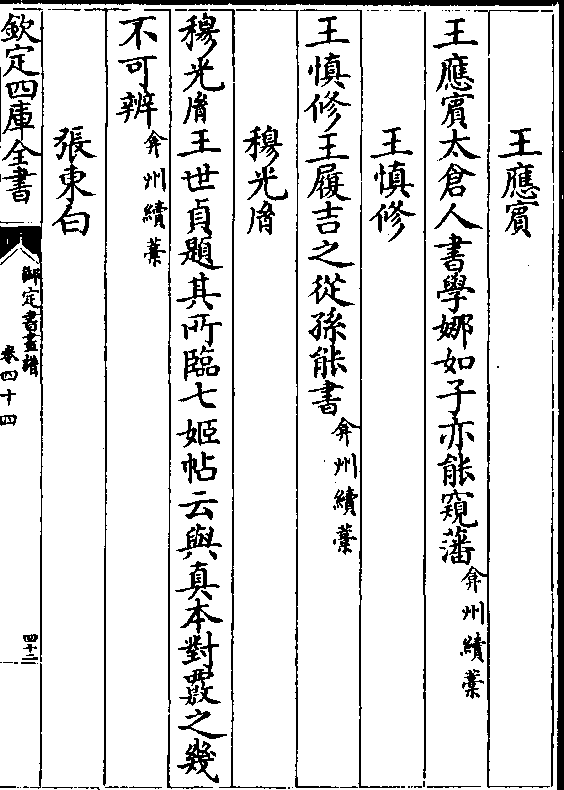 王應賓
王應賓太倉人書學娜如子亦能窺藩弇州續藁
王慎修
王慎修王履吉之從孫能書弇州續藁
穆光胤
穆光胤王世貞題其所臨七姬帖云與真本對覈之幾
不可辨弇州續藁
張東白
欽定四庫全書
御定書畫譜
卷四十四
四十二